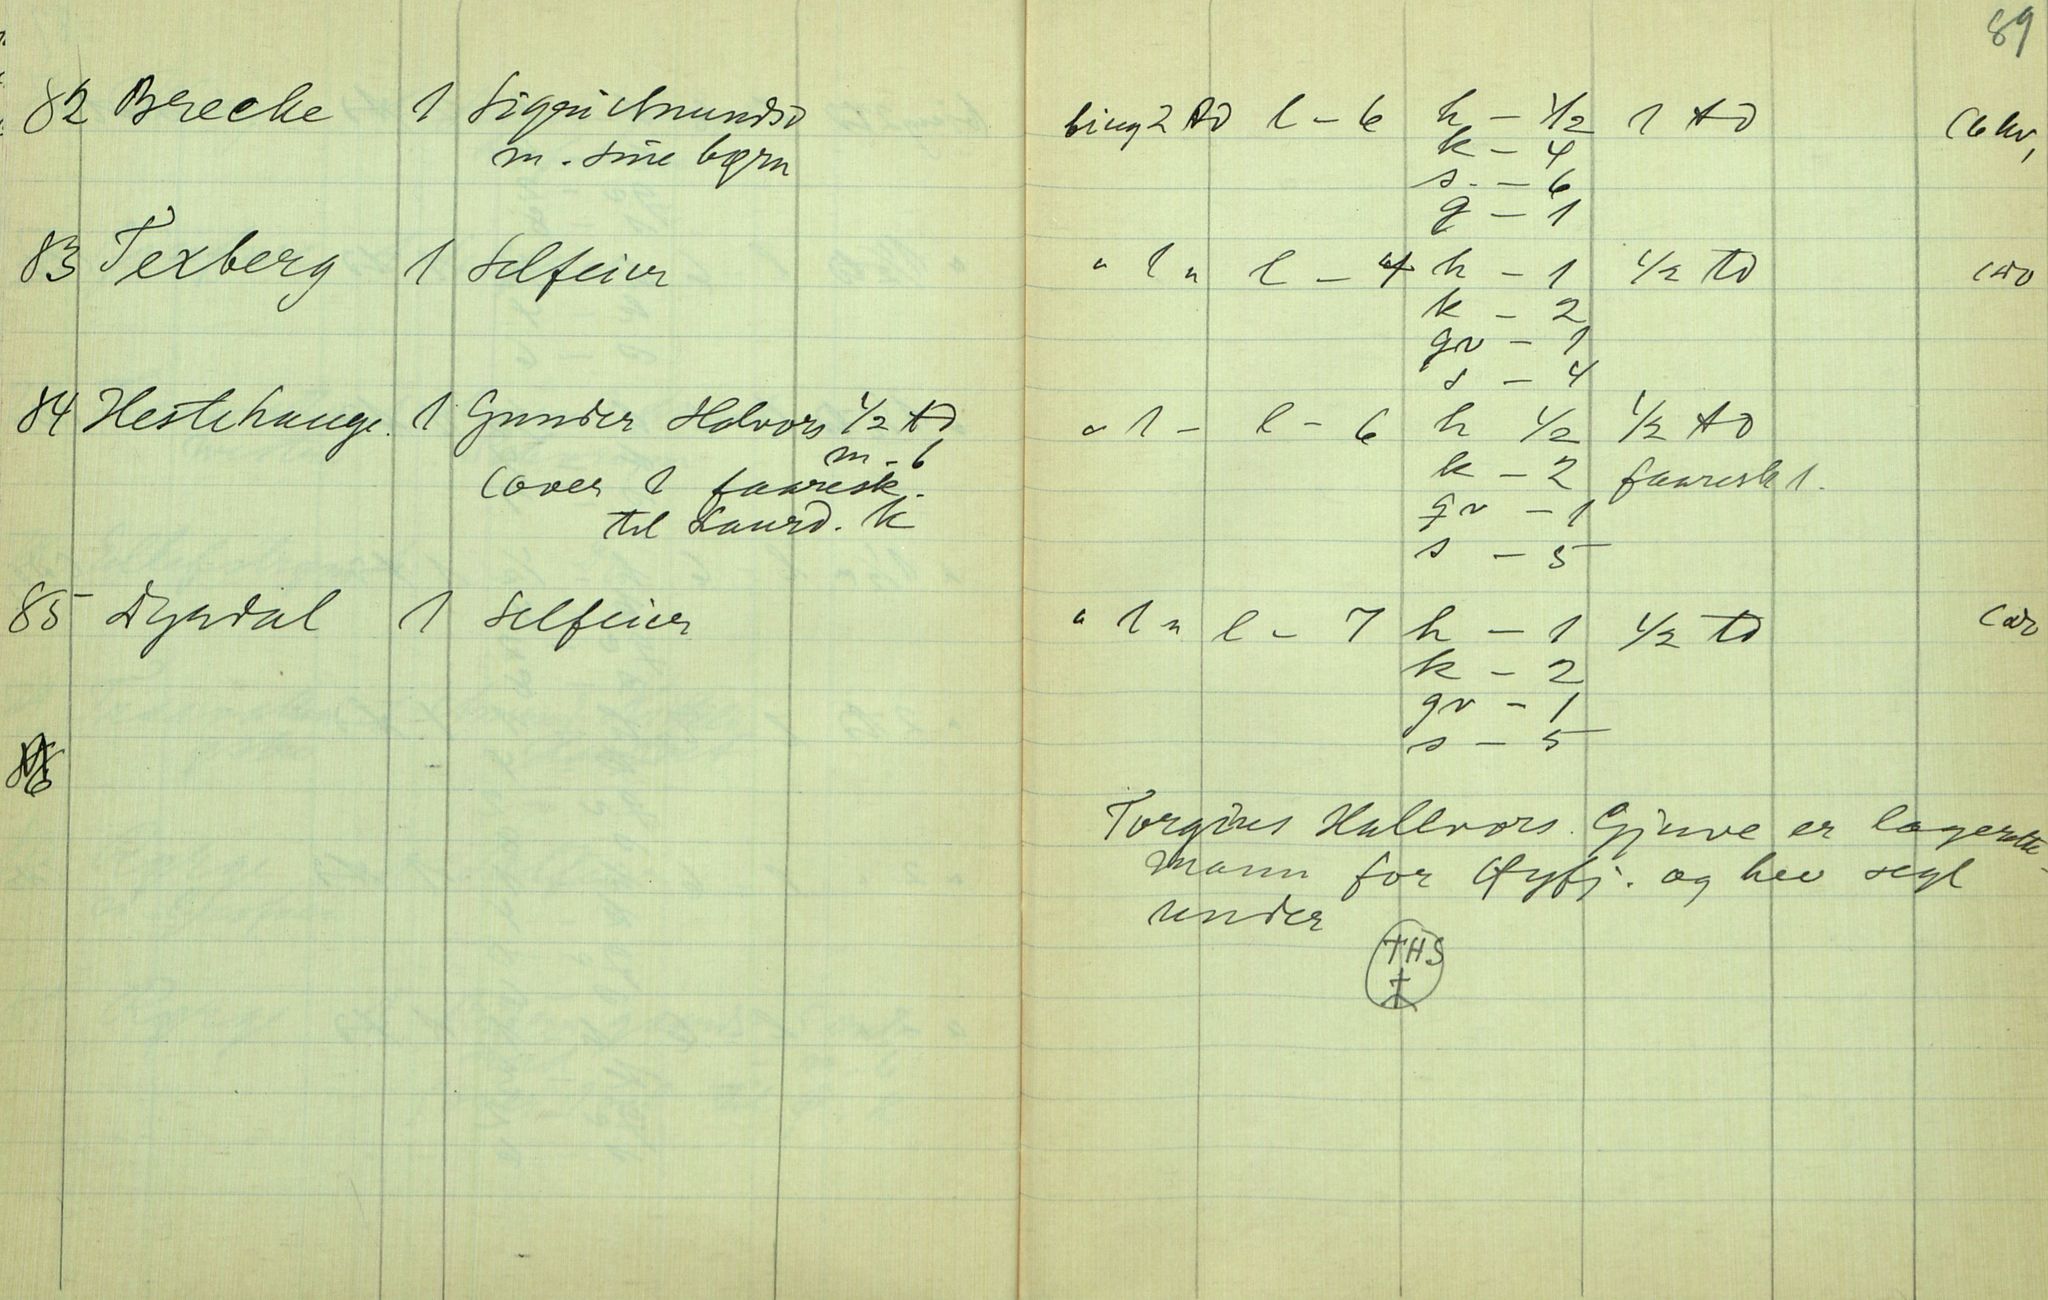 89
82 Brecke 1 Sigri Amundsd bing 2 td l - 6 h - 1/2 1 td
m. sine børn k - 4
s. - 6
g - 1
83 Texberg 1 Selfeier " 1 " l - 4 h - 1 1/2 td
k - 2
gv - 1
s - 4
84 Hestehauge. 1 Gunder Halvors 1/2 td " 1 - l - 6 h 1/2 1/2 td
m - 6 k - 2 faaresk 1.
(over 1 faaresk. gv - 1
til Laurd. k s - 5
85 Dyrdal 1 Selfeier " 1 " l - 7 h - 1 1/2 td
k - 2
gv - 1
s - 5
86
Torgius Hallvors. Gjuve er lagrette-
mann for Øyfj. og hev segl
under
THS